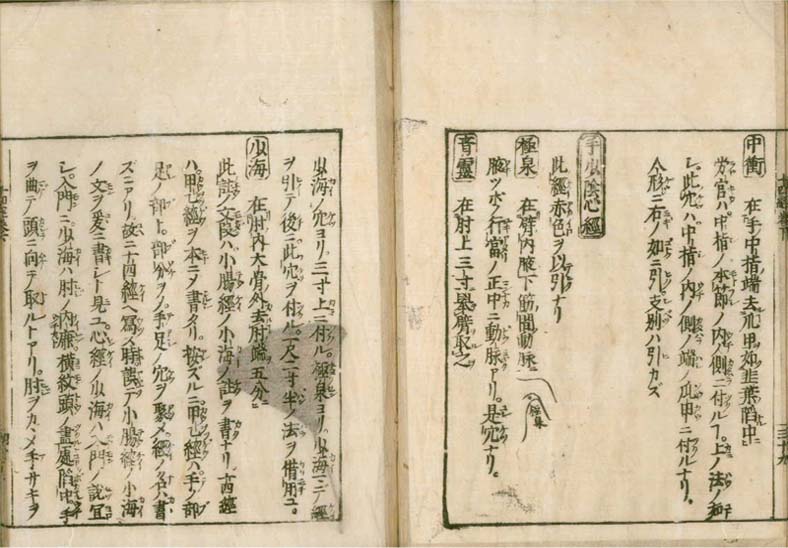 中衝 在手中指端去爪甲如韭葉陷中
労宮ハ中指ノ本節ノ内ノ側ニ付ル上ノ法ノ如
シ此穴ハ中指ノ内ノ側ノ端ノ爪甲ニ付ルナリ
人形ニ右ノ如ニ引支別ハ引カズ
手少陰心經
此經赤色ヲ以引ナリ
極泉 在臂内腋下筋間動脉
極泉
腋ツボク行當ノ正中ニ動脉アリ是穴ナリ
青靈 在肘上三寸舉臂取之
少海ノ穴ヨリ三寸上ニ付ル極泉ヨリ少海マデノ經
ヲ引テ後ニ此穴ヲ付ル一尺二寸半ノ法ヲ借用ユ
少海 在肘内大骨外去肘端五分
此註ノ文段ハ小腸經ノ小海ノ註ヲ書ナリ十四經
ハ甲乙經ヲ本ニメ書タリ按ズルニ甲乙經ハ手ノ部
足ノ部ト部分ヲノ手足ノ穴ヲ聚メ經ノ名ハ書
ズニアリ故ニ十四經ヘ寫ス時誤テ小腸經ノ小海
ノ文ヲ爰ニ書シト見ユ心經ノ少海ハ入門ノ説宜
シ入門ニ少海ハ肘ノ内廉横紋頭盡處陷中手
ヲ曲テ頭ニ向テ取ルトアリ肘ヲカヾメ手サキヲ